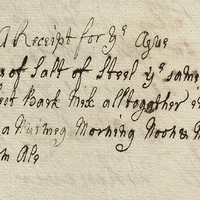 A Receipt for yᵉ Ague
s of Salt of Steel yᵉ same
est Bark Mix alltogether i
a Nutmeg Morning Noon & N
m Ale